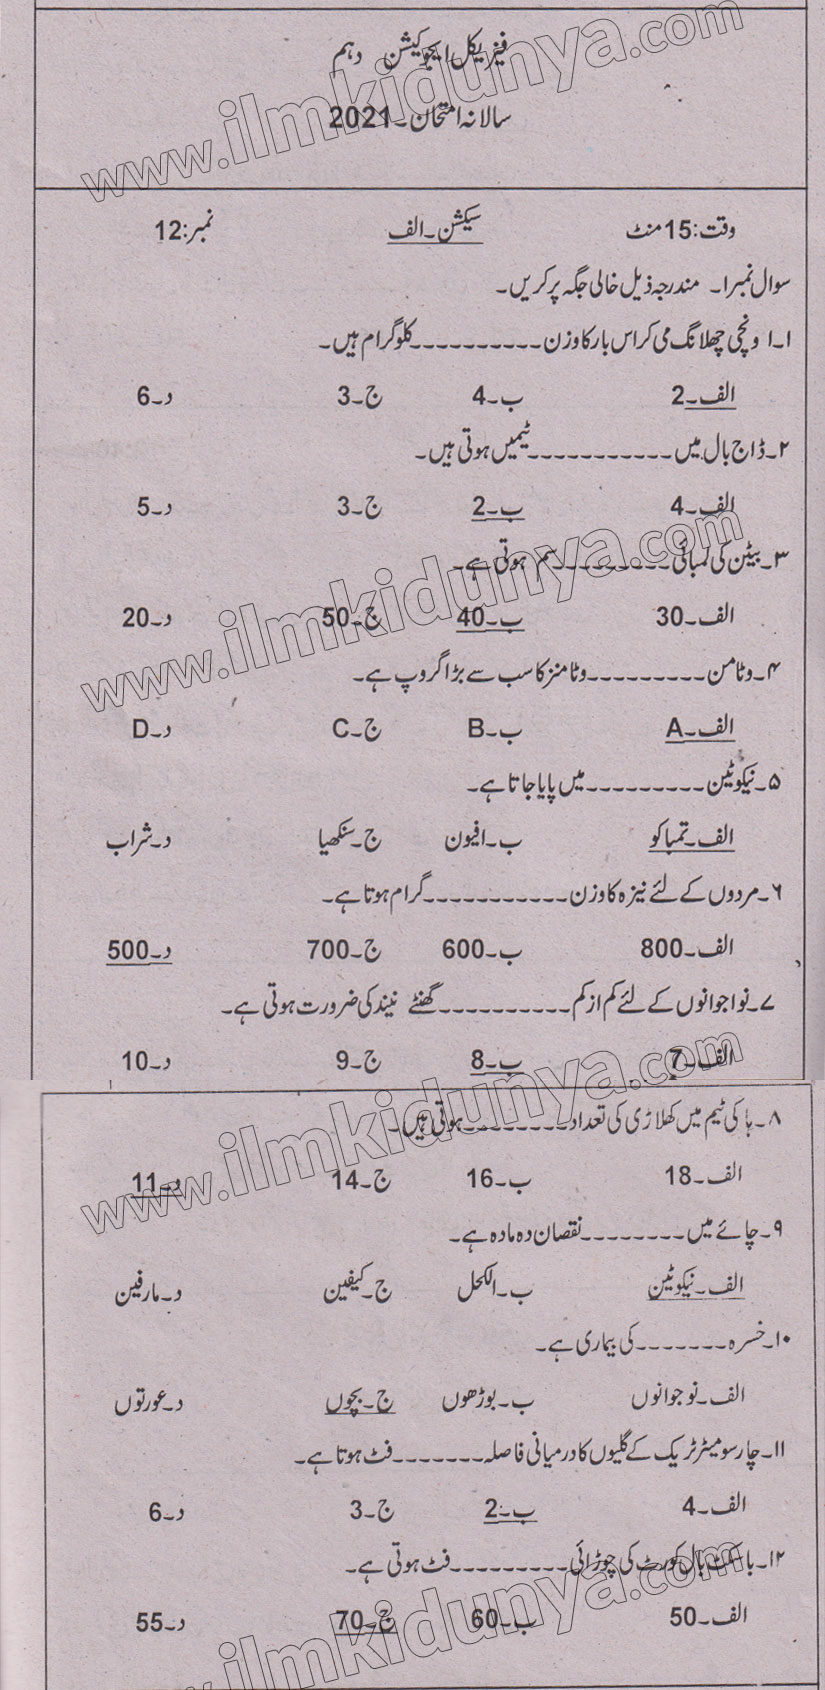 فزیکل ایجوکیشن دہم
سالانہ امتحان۔2021
وقت:15منٹ سیکشن۔الف نمبر:12
سوال نمبر۱۔ مندرجہ ذیل خالی جگہ پر کریں۔
۱۔۱ ونچی چھلانگ می کراس بار کا وزن ۔۔۔۔۔۔۔۔۔۔کلوگرام ہیں۔
الف۔2 ب۔4 ج۔3 د۔6
۲۔ڈاج بال میں ۔۔۔۔۔۔۔۔۔۔۔ٹیمیں ہوتی ہیں۔
الف۔4 ب۔2 ج۔3 د۔5
۳۔بیٹن کی لمبائی۔۔۔۔۔۔۔۔۔سم ہوتی ہے۔
الف۔30 ب۔40 ج۔50 د۔20
۴۔وٹامن ۔۔۔۔۔۔۔۔۔وٹامنز کا سب سے بڑا گروپ ہے۔
الف۔A ب۔B ج۔C د۔D
۵۔نیکوٹین۔۔۔۔۔۔۔۔۔میں پایا جاتا ہے۔
الف۔تمباکو ب۔افیون ج۔سنکھیا د۔شراب
۶۔مردوں کے لئے نیزہ کا وزن ۔۔۔۔۔۔۔۔۔۔۔گرام ہوتا ہے۔
الف۔800 ب۔600 ج۔700 د۔500
۷۔نواجوانوں کے لئے کم از کم ۔۔۔۔۔۔۔۔۔۔گھنٹے نیند کی ضرورت ہوتی ہے۔
الف۔7 ب۔8 ج۔9 د۔10
۸۔ہاکی ٹیم میں کھلاڑی کی تعداد ۔۔۔۔۔۔۔۔ہوتی ہیں۔
الف۔18 ب۔16 ج۔14 د۔11
۹۔چائے میں ۔۔۔۔۔۔۔۔نقصان دہ مادہ ہے۔
الف۔نیکوٹین ب۔الکحل ج۔کیفین د۔مارفین
۱۰۔خسرہ ۔۔۔۔۔۔۔کی بیماری ہے۔
الف۔نوجوانوں ب۔بوڑھوں ج۔بچوں د۔عورتوں
۱۱۔چار سو میٹر ٹریک کے گلیوں کا درمیانی فاصلہ ۔۔۔۔۔۔۔فٹ ہوتا ہے۔
الف۔4 ب۔2 ج۔3 د۔6
۱۲۔باسکٹ بال کورٹ کی چوڑائی ۔۔۔۔۔۔۔۔۔فٹ ہوتی ہے۔
الف۔50 ب۔60 ج۔70 د۔55
www.ilmkidunya.com
www.ilmkidunya.com
www.ilmkidunya.com
www.ilmkidunya.com